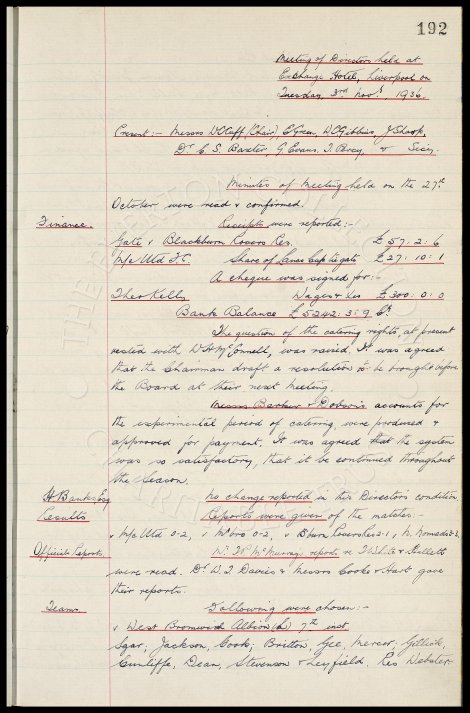 192
Meeting of Directors held at
Exchange Hotel, Liverpool on
Tuesday, 3rd Novr, 1936.
Present:- Messrs W.C. Cuff (Chair), E. Green, A. Gibbins, J. Sharp,
Dr. C. S. Baxter, G. Evans, T. Percy, & Secy.
Minutes of Meeting held on the 27th
October were read & confirmed.
Finance. Receipts were reported:-
Gate v Blackburn Rovers Res. £57: 2: 6
M/c Utd F.C. Share of Lancs Cup tie gate £27: 10: 1
A cheque was signed for:-
Theo Kelly Wages & Exs £300: 0: 0
Bank Balance £5242: 3: 9 Cr.
The question of the catering rights, at present
vested with W. H. McConnell, was raised. It was agreed
that the Chairman draft a resolution to be brought before
the Board at their next Meeting.
Messrs Barker & Dobson's accounts for
the experimental period of catering were produced &
approved for payment. It was agreed that the system
was so satisfactory, that it be continued throughout
the Season.
H Banks Esq no change reported in this Director's condition.
Results Reports were given of the matches:-
v M/c Utd 0-2, v M'boro 0-2, v B'burn Rovers Res 2-1, v N. Nomads 2-3.
Officials Reports Mr McMurray reports re &
were read. Dr. W. J. Davies & Messrs Cooke & Hart gave
their reports.
Teams Following were chosen:-
v West Bromwich Albion (h) 7th inst
Sagar, Jackson, Cook; Britton, Gee, Mercer; Gillick,
Cunliffe, Dean, Stevenson & Leyfield. Res Webster.